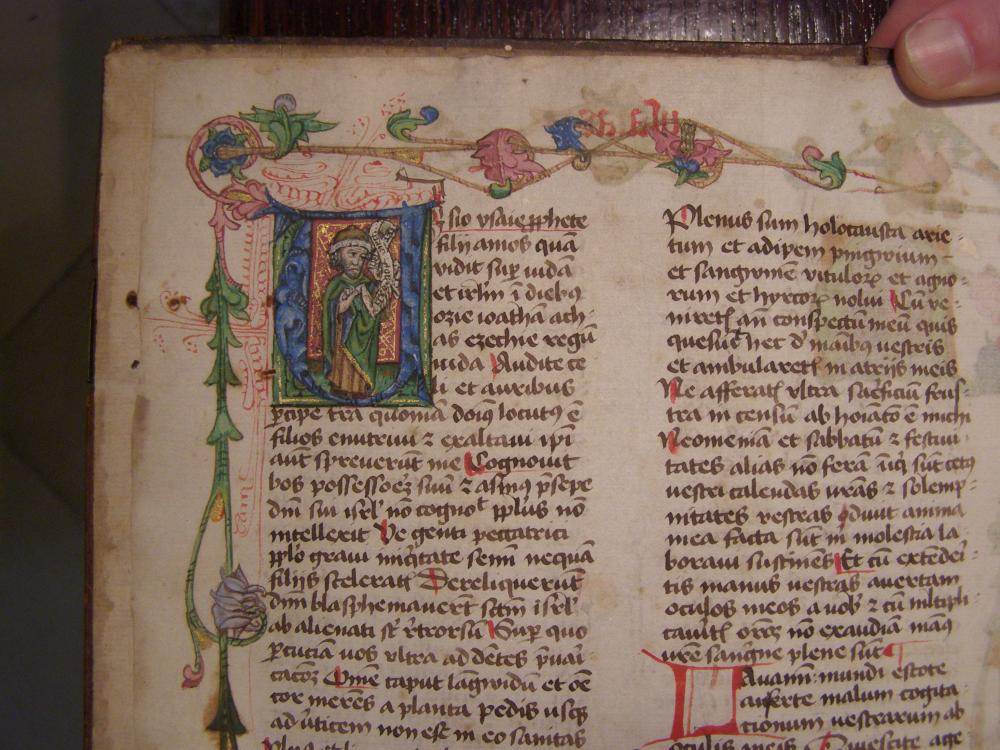 sio ysaie pphete
filij amos quā
vidit sup iudā
et irlm ī diebꝯ
ozie ioathā ach-
as ezechie regū
iuda Audite ce
li et auribus
ꝑcipe tra quoniam dominꝯ locutꝯ ē
filios enutriui ⁊ exaltaui ipi
aut spreuerūt me Cognouit
bos possessorē suū ⁊ asinꝯ p̄sepe
dm̄ sui isrl no cognoᵗ pplus nō
intellexit Ve genti peccatrici
pplo graui iniqitate semī nequā
filijs sceleratꝭ Dereliquerūt
dnm blasphemauerūt sctm isrl
ab alienati st retrorsū Sup quo
ꝑcuciā uos vltra addētes p̄uai-
cacōꝫ Omē caput lāgwidū et oē
cor merēs a planta pedis usqꝫ
ad ūticem non est in eo sanitas
Plenus sum holocausta arie-
tum et adipem pingwium
et sangwinē vituloꝝ et agno-
rum et hyrcoꝝ nolui Cū ve-
niretꝭ an̄ conspectū meū quis
quesiuit hec d' māibꝯ vestris
et ambularetꝭ in atrijs meis
Ne afferatꝭ vltra sacrificiū frus-
tra incensū abhoiatō ē michi
Neomeniā et sabbatū ⁊ festiui-
tates alias nō ferā īiqi sūt cetꝯ
vestri calendas vrās ⁊ solemp-
nitates vestras odiuit anima
mea facta sūt m̄ molesta la
boraui sustinēs Et cū extēdei-
tis manus vestras auertam
oculos meos a uobꝭ ⁊ cū mltipli-
cauitꝭ orōꝫ nō exaudiā manꝯ
vrē sangwine plene sūt
Lauamī mundi estote
auferte malum cogita
tionum vestrarum ab
oculis meis Quiescite age